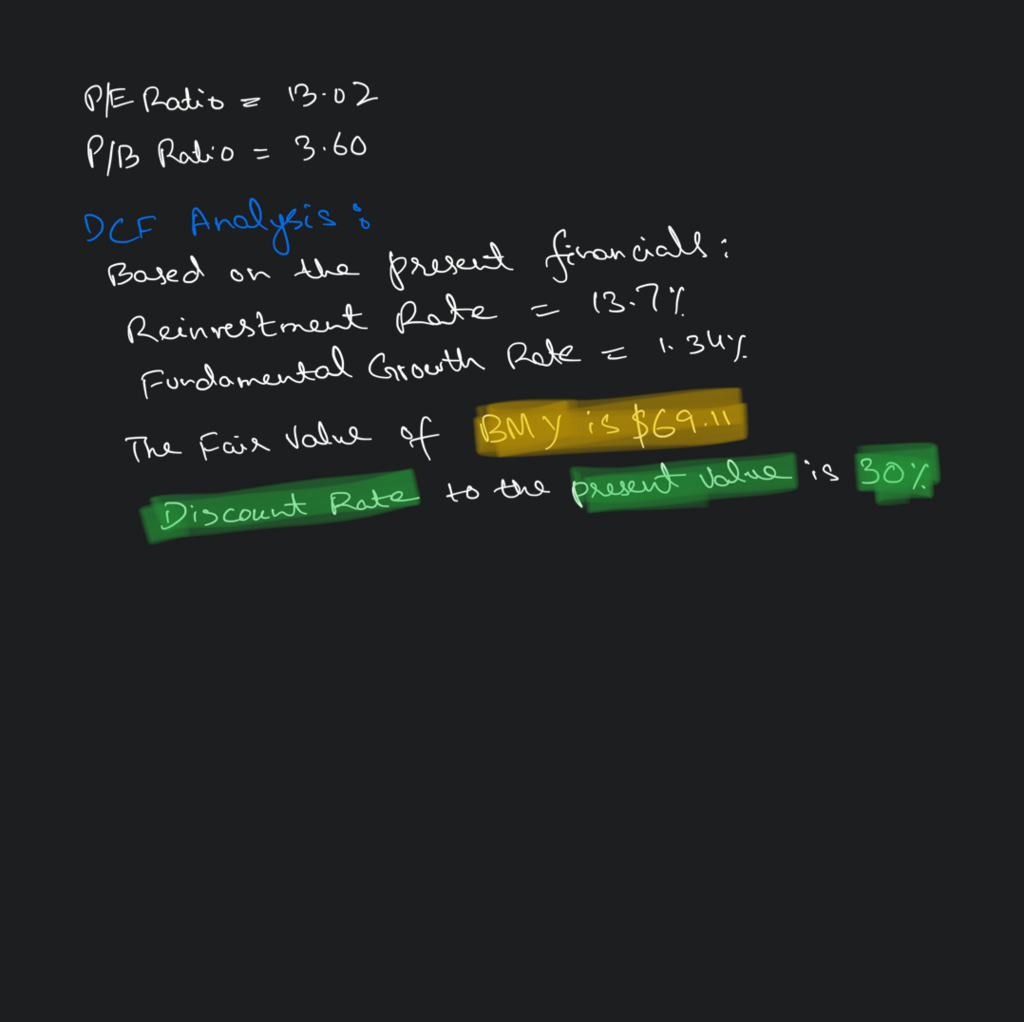 P/E Ratio = 13.02
P/B Ratio = 3.60
DCF Analysis:
Based on the present financials:
Reinvestment Rate = 13.7%
Fundamental Growth Rate = 1.34%
The Fair Value of BMY is $69.11
Discount Rate to the present value is 30%